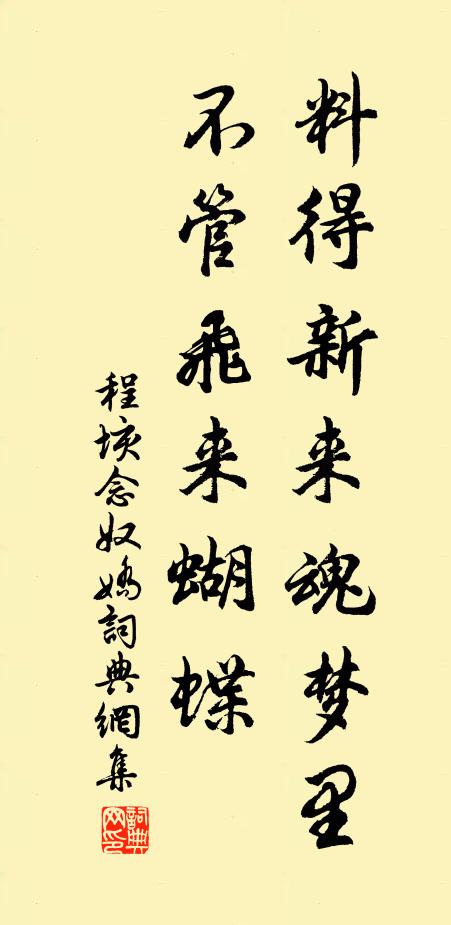 料得新来魂梦里
不管飛来蝴蝶
程垓念奴嬌詞典網集
詞典
网印